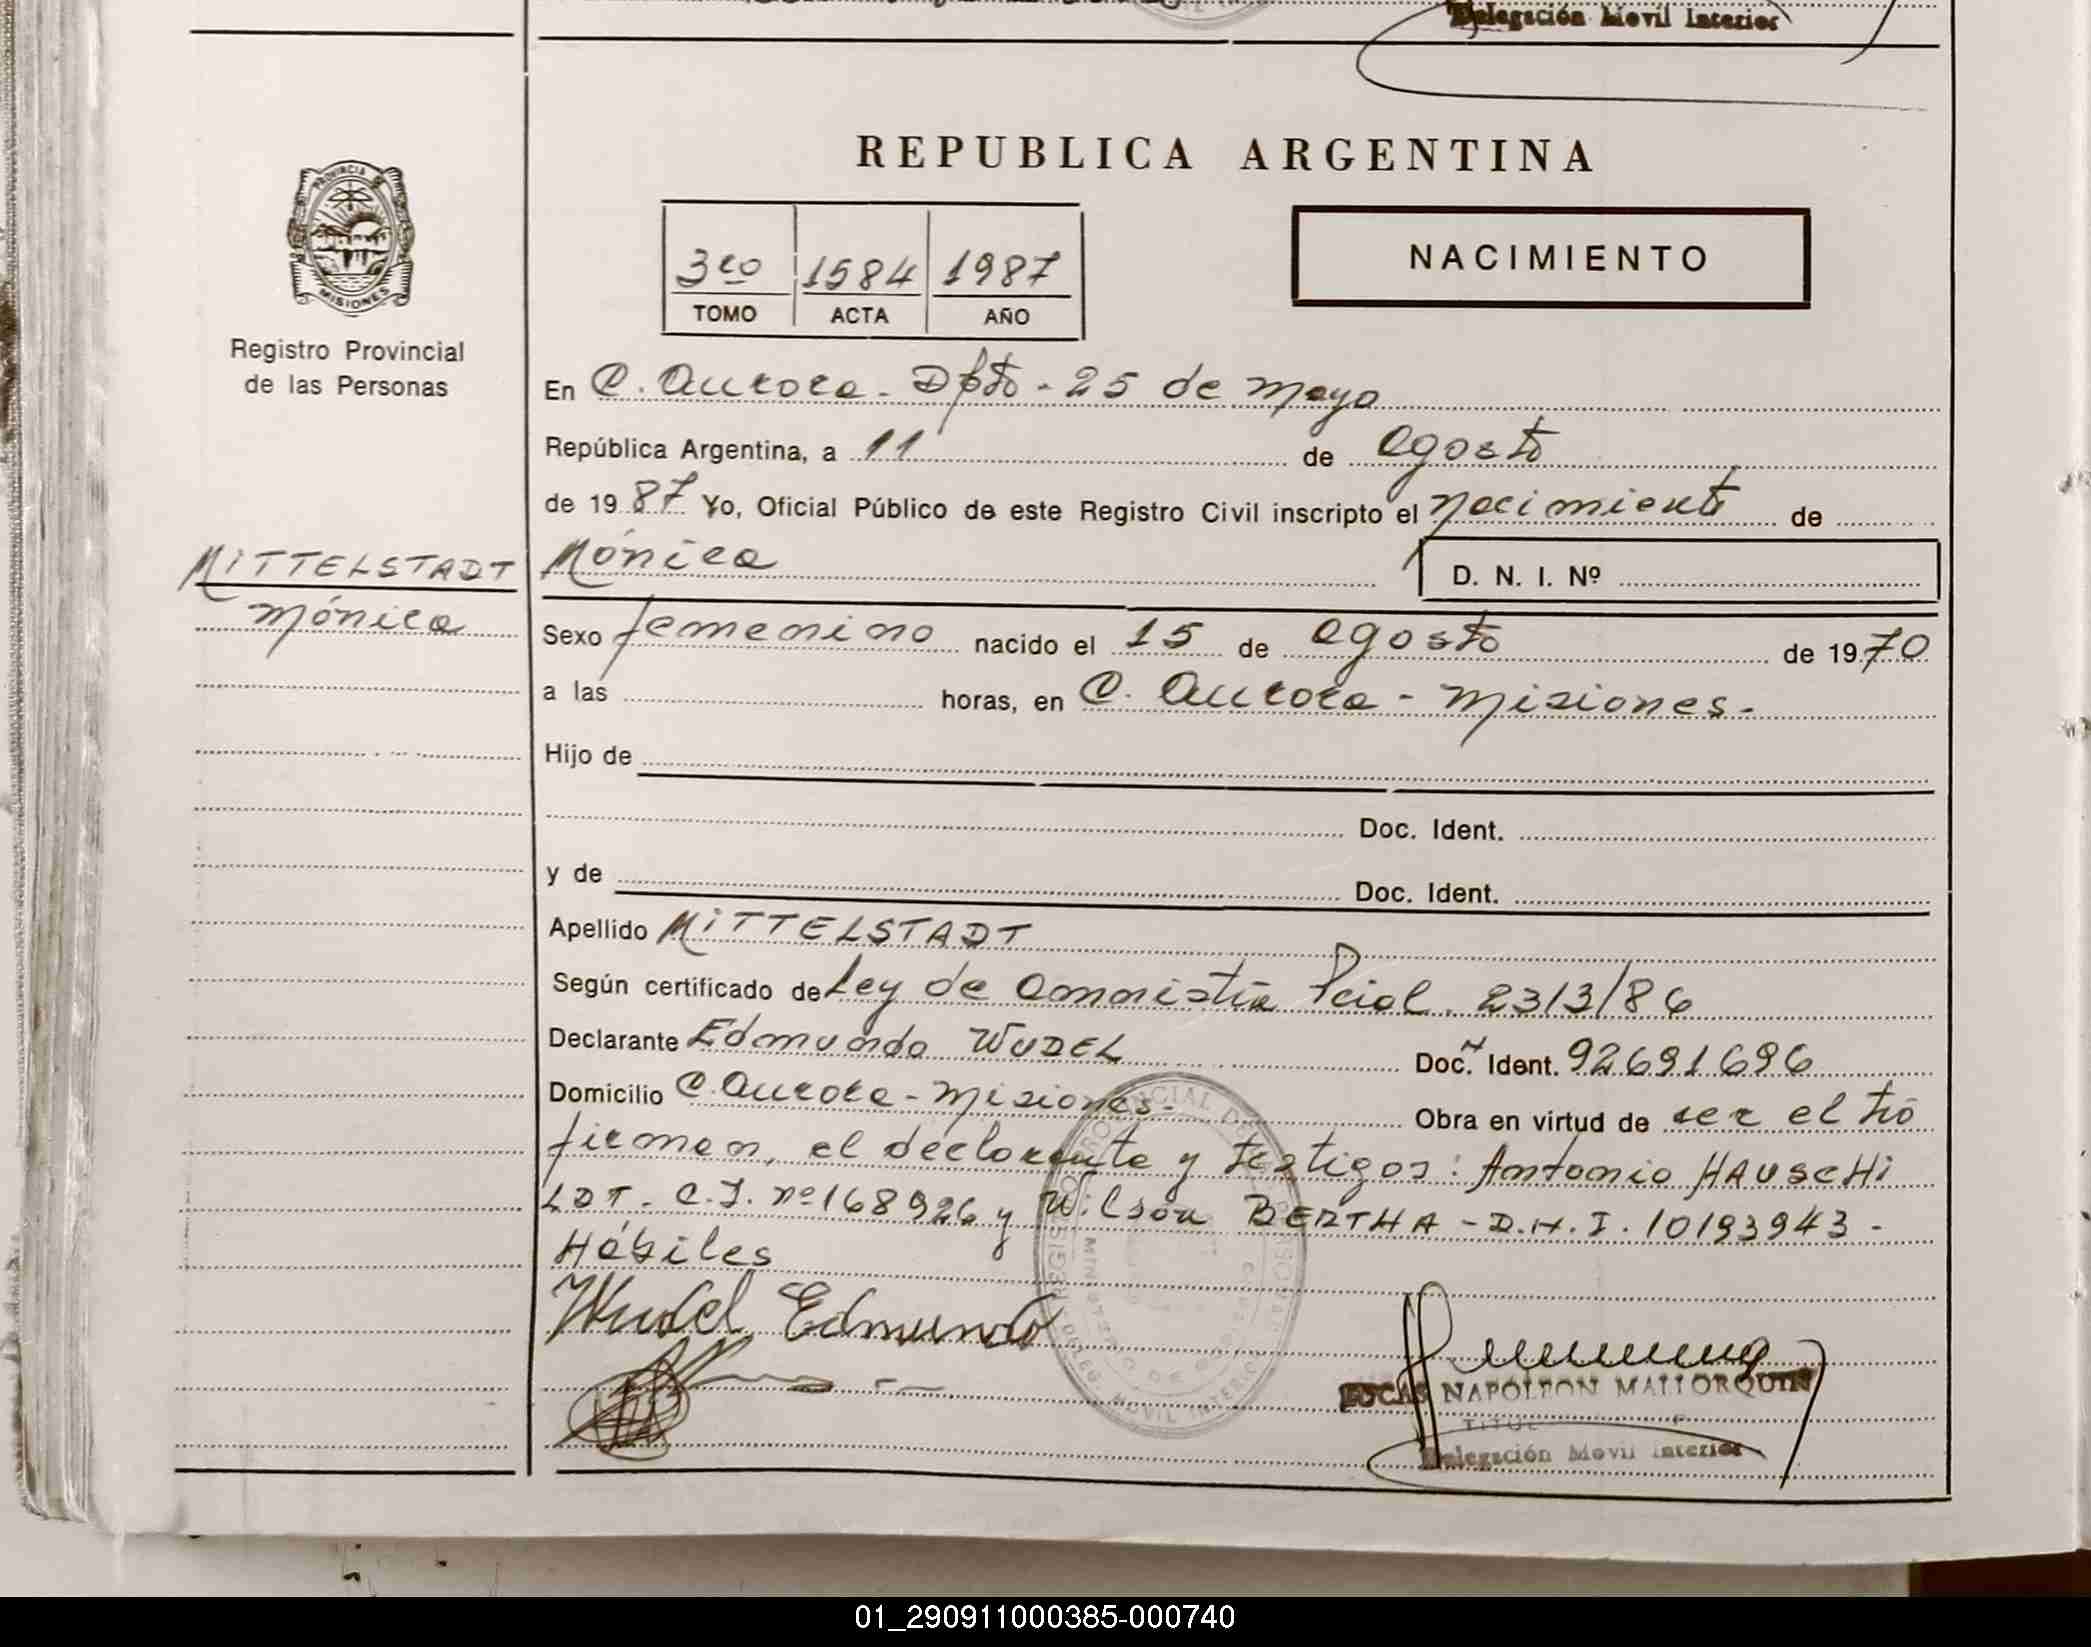 Delegación Movil Interior
REPUBLICA ARGENTINA
PROVINCIA DE
MISIONES
3ro 1584 1987
TOMO ACTA AÑO
NACIMIENTO
Registro Provincial
de las Personas
En C. Aurora - Dpto - 25 de Mayo
República Argentina, a 11 de agosto
de 1987 Yo, Oficial Público de este Registro Civil inscripto el nacimiento de
MITTELSTADT
Mónica
Mónica
D. N. I. Nº
Sexo femenino nacido el 15 de agosto de 1970
a las horas, en C. Aurora - Misiones -
Hijo de
Doc. Ident.
y de Doc. Ident.
Apellido MITTELSTADT
Según certificado de Ley de Amnistía Pcial. 2313/86
Declarante Edmundo WUDEL Doc. Ident. 92691696
Domicilio C. Aurora - Misiones - Obra en virtud de ser el tío
firman, el declarante y testigos: Antonio HAUSCHI
LDT - C.I. nº 168926 y Wilson BERTHA - D.N.I. 10193943 -
Hábiles
Wudel Edmundo
LUCAS NAPOLEON MALLORQUIN
Delegación Movil Interior
01_290911000385-000740